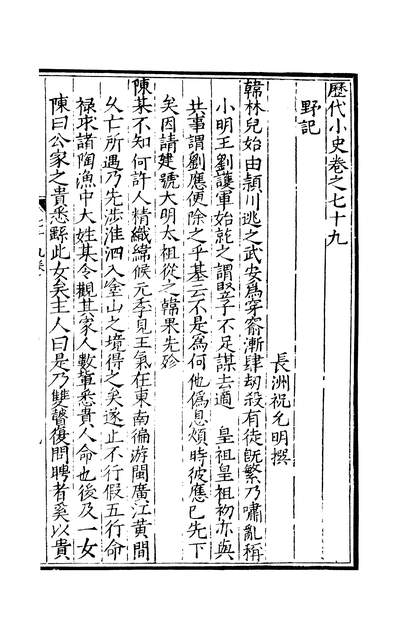 歷代小史卷之七十九
野記
長洲祝允明撰
韓林兒始由頴川逃之武安爲穿窬漸肆劫殺有徒旣繁乃嘯亂稱
小明王劉護軍始詑之謂竪子不足謀去適　皇祖皇祖初亦與
共事謂劉應便除之乎基云不是爲何他僞息煩時彼應已先下
矣因請建號大明太祖從之韓果先殄
陳某不知何許人精織緯候元季見王氣在東南徧游閩廣江黃間
乆亡所遇乃先渉淮泗入塗山之境得之矣遂止不行假五行命
禄求諸陶漁中大姓某令觀其家人數輩悉貴人命也後及一女
陳曰公家之貴悉繇此女矣主人曰是乃雙瞽復問聘者奚以貴